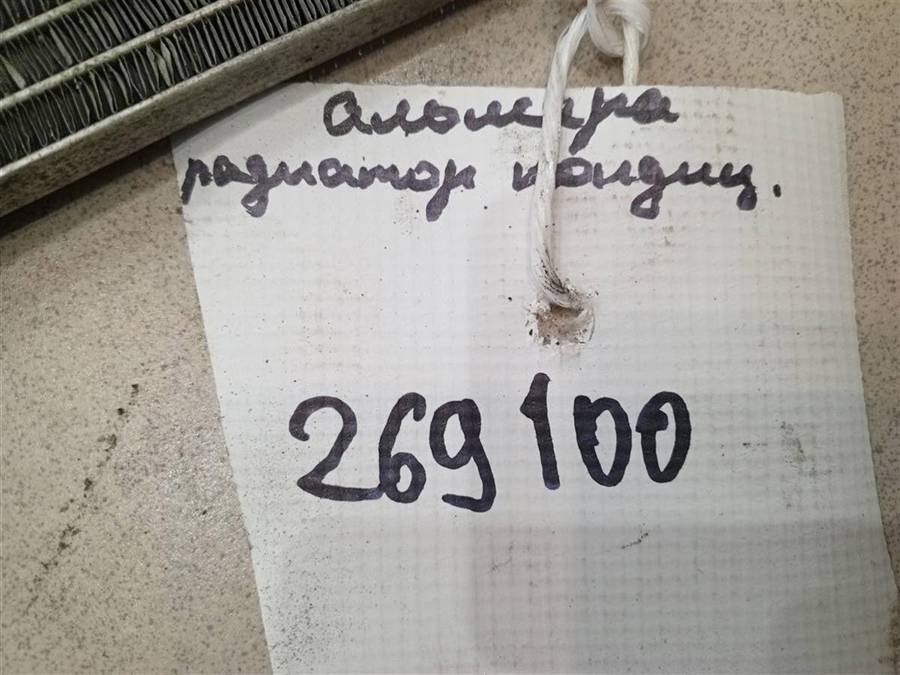 альмера
радиатор кондиц.
269100